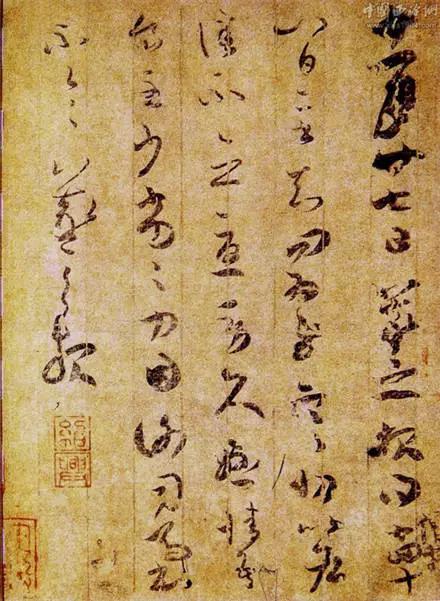 十一月廿七日羲之報得十四十
八日二書知問為慰寒切比各
佳不念憂勞久懸情吾
食至少劣劣力因謝司馬書
不一一羲之報
紹興